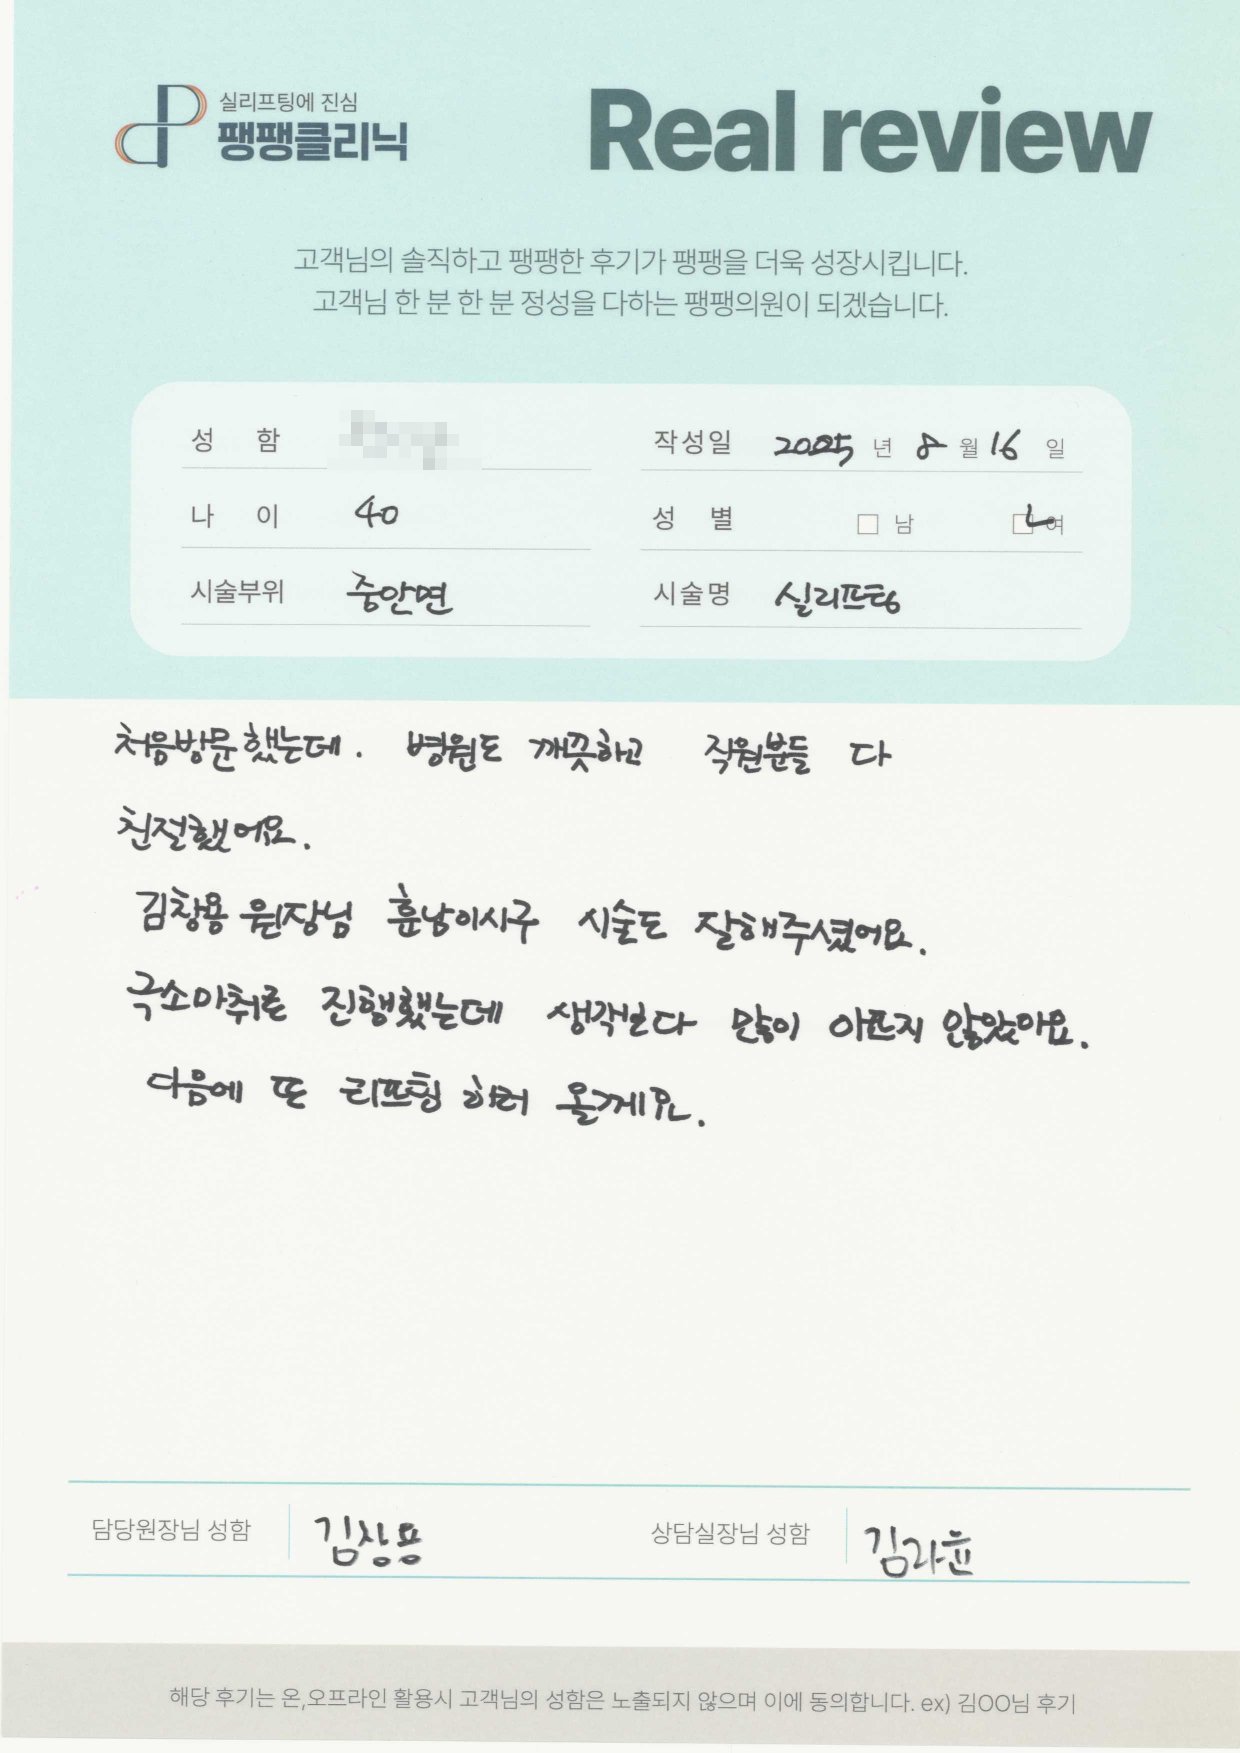 실리프팅에 진심
팽팽클리닉
Real review
고객님의 솔직하고 팽팽한 후기가 팽팽을 더욱 성장시킵니다.
고객님 한 분 한 분 정성을 다하는 팽팽의원이 되겠습니다.
성 함
작성일 2025 년 8 월 16 일
나 이 40
성 별 남 여
시술부위 중안면
시술명 실리프팅
처음방문했는데. 병원도 깨끗하고 직원분들 다
친절했어요.
김창용 원장님 훈남이시구 시술도 잘해주셨어요.
국소마취로 진행했는데 생각보다 많이 아프지 않았아요.
다음에 또 리프팅 하러 올께요.
담당원장님 성함 김창용
상담실장님 성함 김라윤
해당 후기는 온,오프라인 활용시 고객님의 성함은 노출되지 않으며 이에 동의합니다. ex) 김OO님 후기